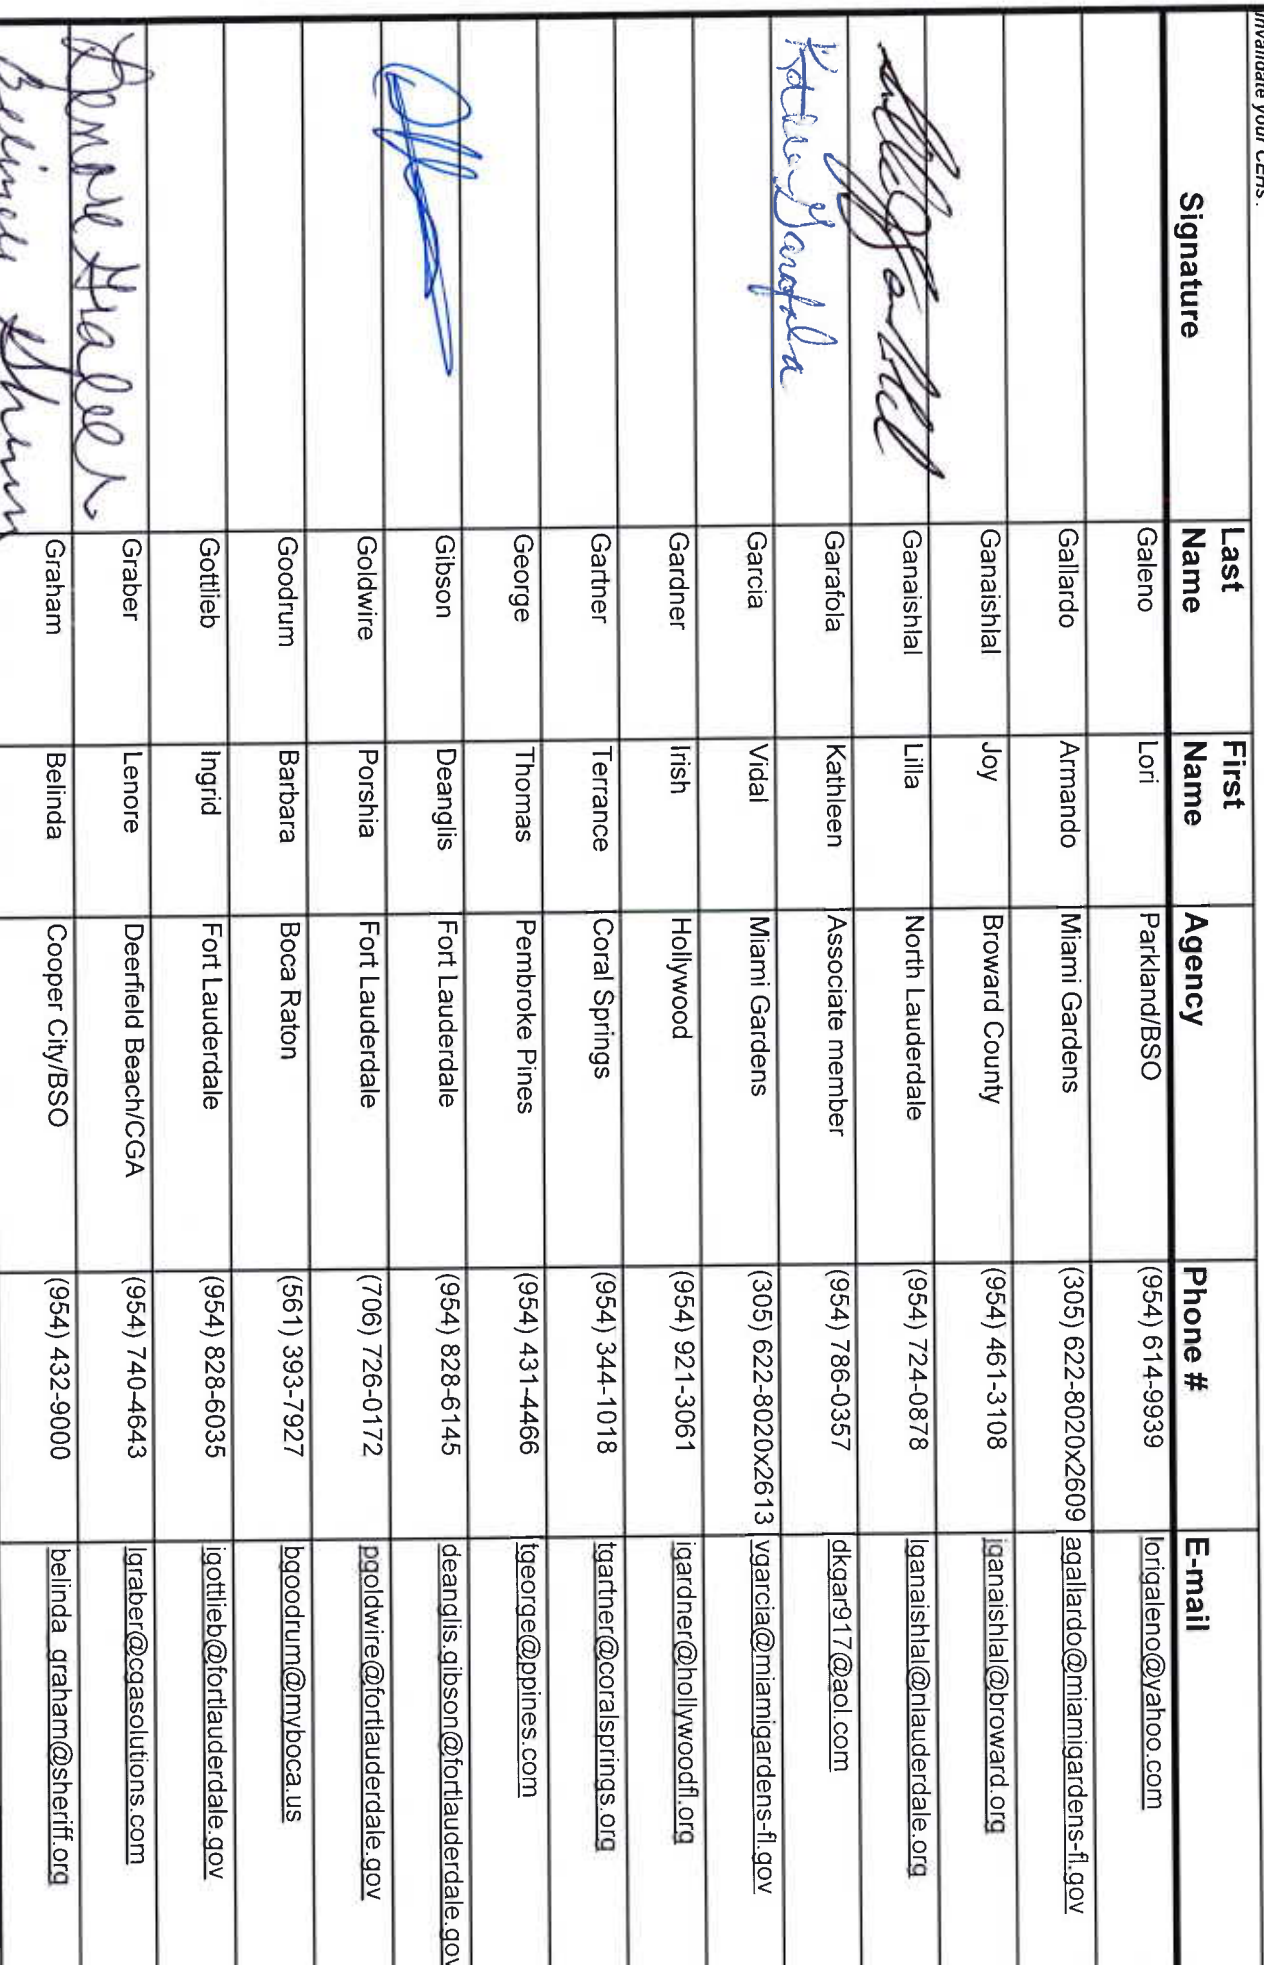 invalidate your CEHs.
Signature Last Name First Name Agency Phone # E-mail
Galeno Lori Parkland/BSO (954) 614-9939 lorigaleno@yahoo.com
Gallardo Armando Miami Gardens (305) 622-8020x2609 agallardo@miamigardens-fl.gov
Ganaishlal Joy Broward County (954) 461-3108 jganaishlal@broward.org
Ganaishlal Lilla North Lauderdale (954) 724-0878 lganaishlal@nlauderdale.org
Garafola Kathleen Associate member (954) 786-0357 dkgar917@aol.com
Garcia Vidal Miami Gardens (305) 622-8020x2613 vgarcia@miamigardens-fl.gov
Gardner Irish Hollywood (954) 921-3061 igardner@hollywoodfl.org
Gartner Terrance Coral Springs (954) 344-1018 tgartner@coralsprings.org
George Thomas Pembroke Pines (954) 431-4466 tgeorge@ppines.com
Gibson Deanglis Fort Lauderdale (954) 828-6145 deanglis.gibson@fortlauderdale.gov
Goldwire Porshia Fort Lauderdale (706) 726-0172 pgoldwire@fortlauderdale.gov
Goodrum Barbara Boca Raton (561) 393-7927 bgoodrum@myboca.us
Gottlieb Ingrid Fort Lauderdale (954) 828-6035 igottlieb@fortlauderdale.gov
Graber Lenore Deerfield Beach/CGA (954) 740-4643 lgraber@cgasolutions.com
Graham Belinda Cooper City/BSO (954) 432-9000 belinda_graham@sheriff.org